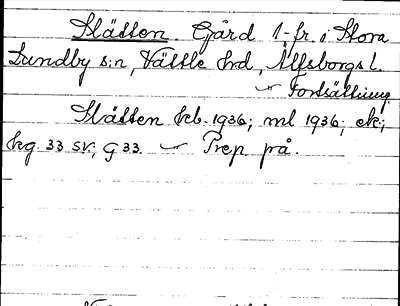 Slätten. Gård 1-fr. i Stora
Lundby s:n, Vättle hd, Älfsborgs l.
Fortsättning
Slätten kb. 1936; ml 1936; ek;
hg 33 sv; G 33. Prep på.